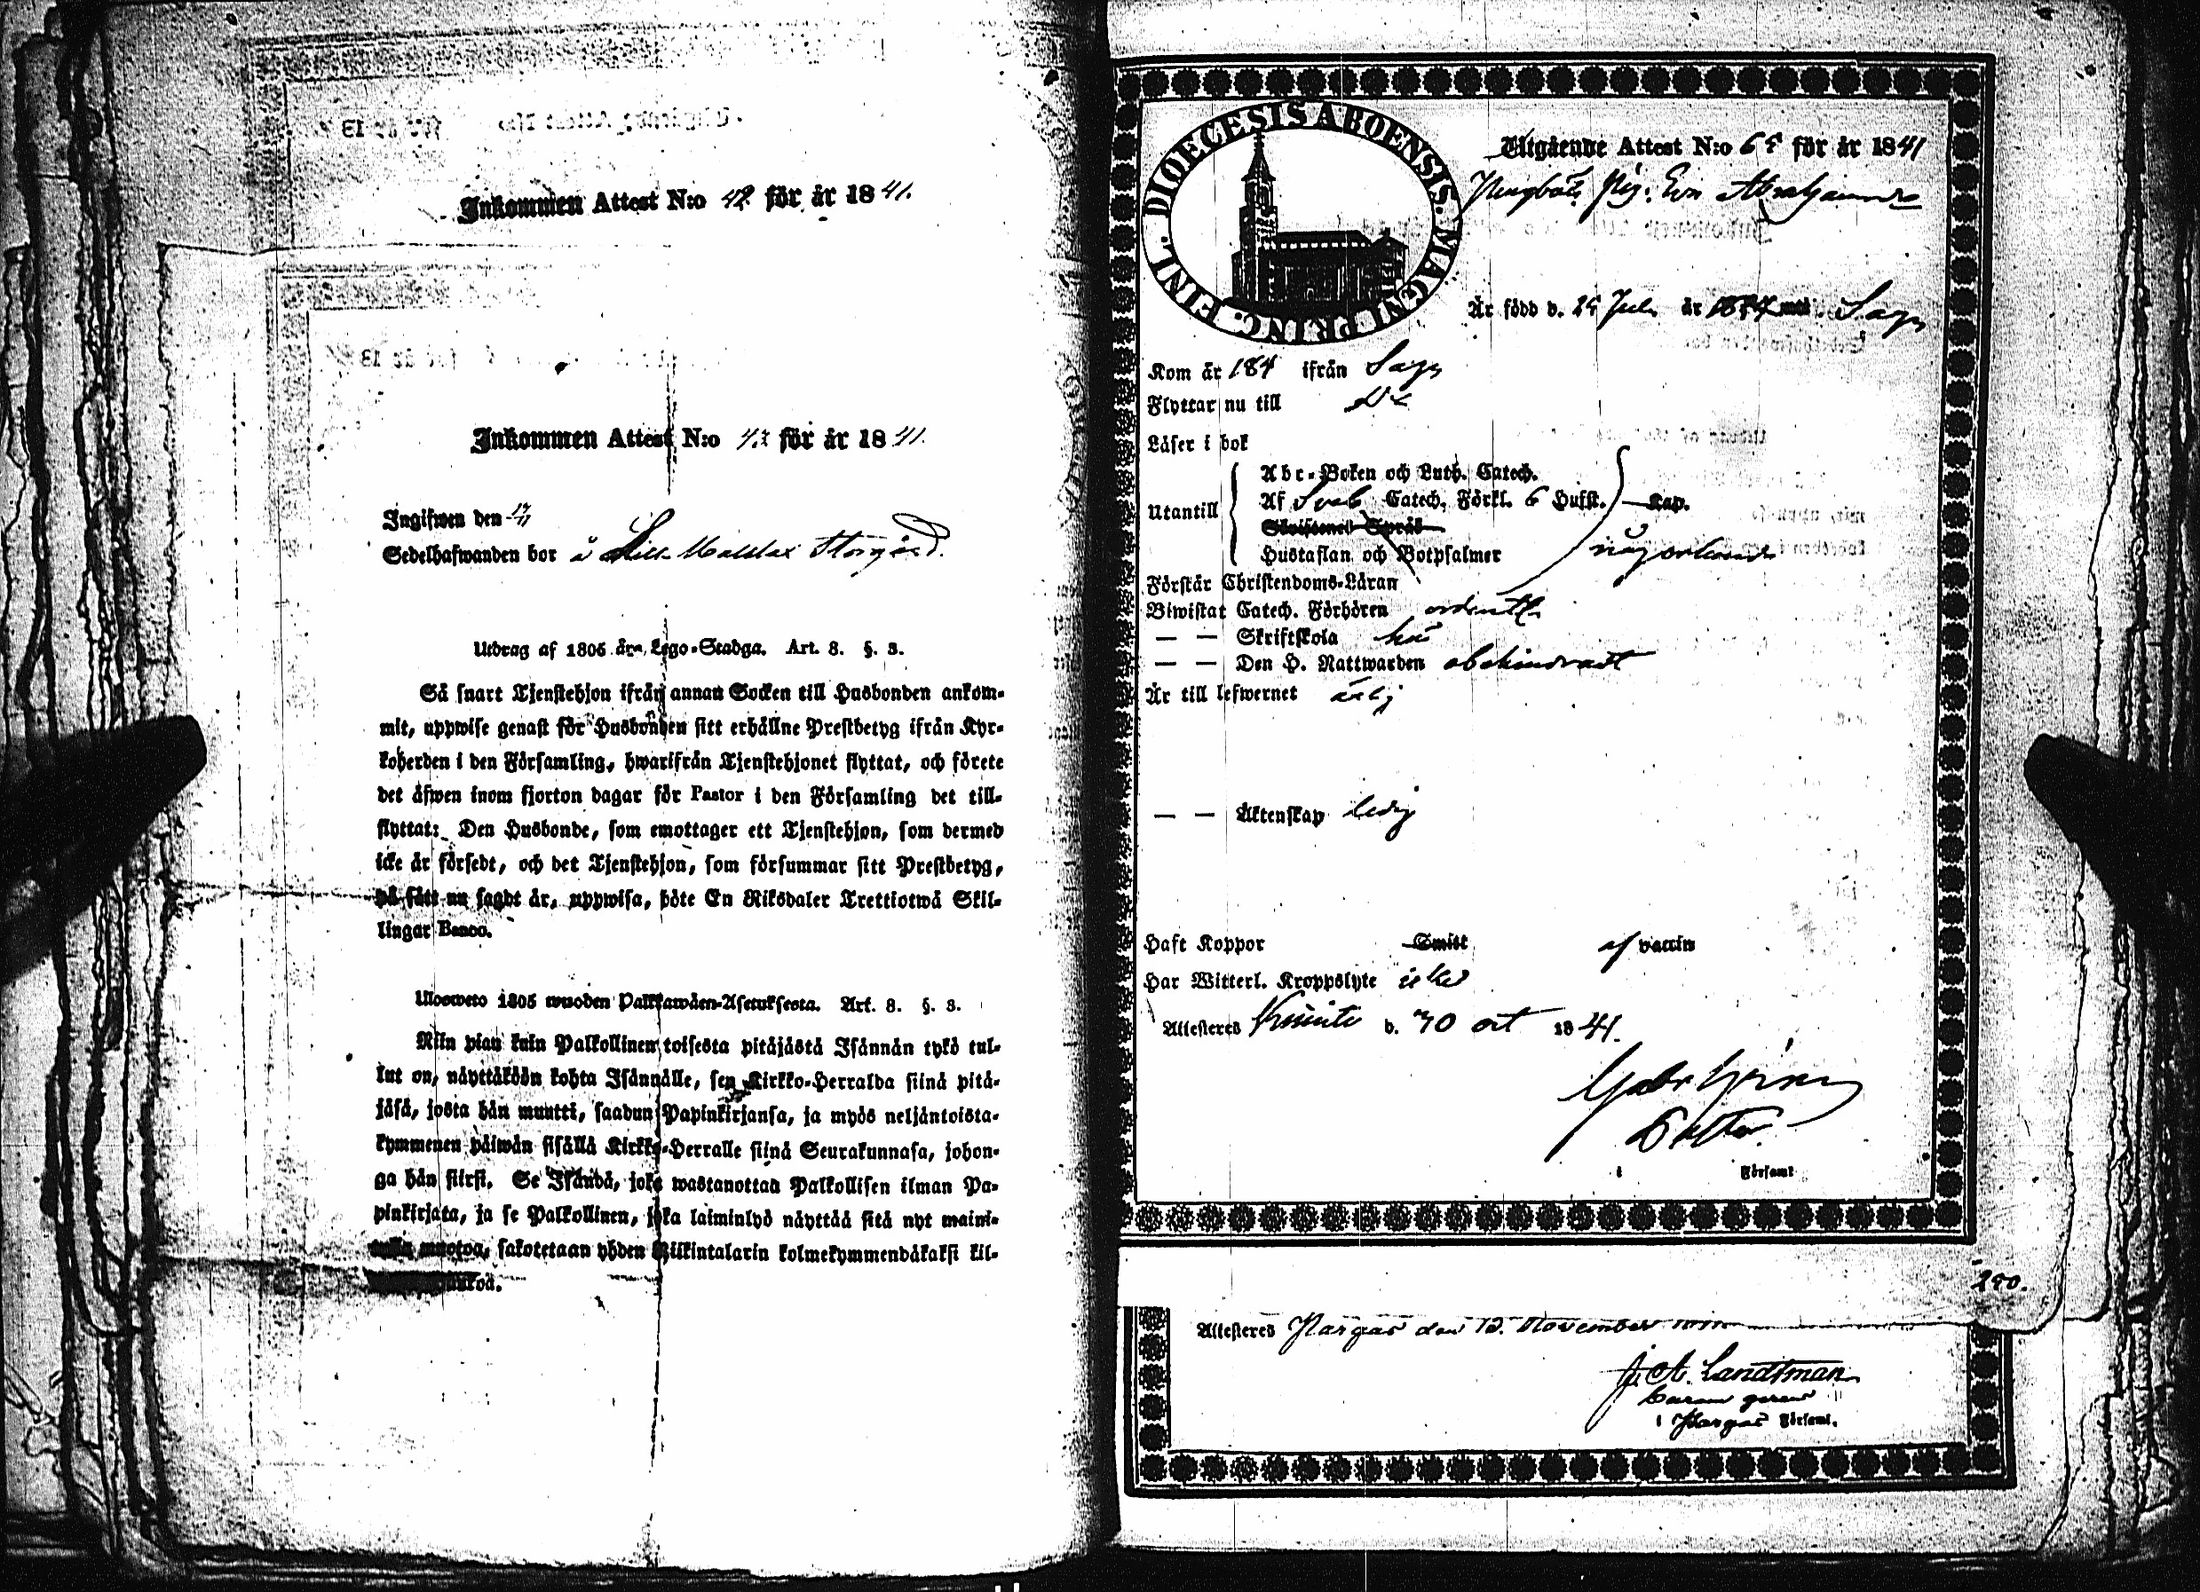 Inkommen Attest N:o 42 för år 1841.
Inkommen Attest N:o för år 1841.
Ingifwen den
Sedelhafwanden bor å Lill Maldax Storgård.
Utdrag af 1805 års Lego-Stadga. Art. 8. §. 3.
Så snart Tjenstehjon ifrån annan Socken till Husbonden ankom-
mit, uppwise genast för Husbonden sitt erhållne Prestbetyg ifrån Kyr-
koherden i den Församling, hwarifrån Tjenstehjonet flyttat, och förete
det äfwen inom fjorton dagar för Pastor i den Församling det till-
flyttat: Den Husbonde, som emottager ett Tjenstehjon, som dermed
icke är försedt, och det Tjenstehjon, som försummar sitt Prestbetyg,
på sätt nu sagdt är, uppwisa, böte En Riksdaler Trettiotwå Skil-
lingar Banco.
Ulosweto 1805 wuoden Palkkawäen-Asetuksesta. Art. 8. §. 3.
Niin pian kuin Palkollinen toisesta pitäjästä Isännän tykö tul-
lut on, näyttäköön kohta Isännälle, sen Kirkko-Herralda siinä pitä-
jäsä, josta hän muutti, saadun Papinkirjansa, ja myös neljäntoista-
kymmenen päiwän sisällä Kirkko-Herralle siinä Seurakunnasa, johon-
ga hän siirsi. Se Isändä, joka wastanottaa Palkollisen ilman Pa-
pinkirjata, ja se Palkollinen, joka laiminlyö näyttää sitä nyt maini-
tulla muotoa, sakotetaan yhden Riikintalarin kolmekymmendäkaksi kil-
DIOECESIS ABOENSIS. MAGNI PRINC. FINL.
Utgående Attest N:o för år 1841
Pig. Eva Abrahamsdr
Är född d. 25 Juli år i Sagu
Kom år 184 ifrån Sagu
Flyttar nu till
Läser i bok
Utantill
Abc-Boken och Luth. Catech.
Af Sveb. Catech. Förkl. 6 Hufst. Kap.
Skriftenes Språk
Hustaflan och Botpsalmer någorlunda
Förstår Christendoms-Läran
Biwistat Catech. Förhören ordentl.
— — Skriftskola här
— — Den H. Nattwarden obehindradt
Är till lefwernet ärlig
— — Äktenskap ledig
Haft Koppor Smitt af vaccin
Har Witterl. Kroppslyte icke
Attesteres Kimito d. 30 oct 1841.
i Församl
250.
Attesteres Pargas den 13. November
J. A. Landtman
Curam gerens
i Pargas Församl.